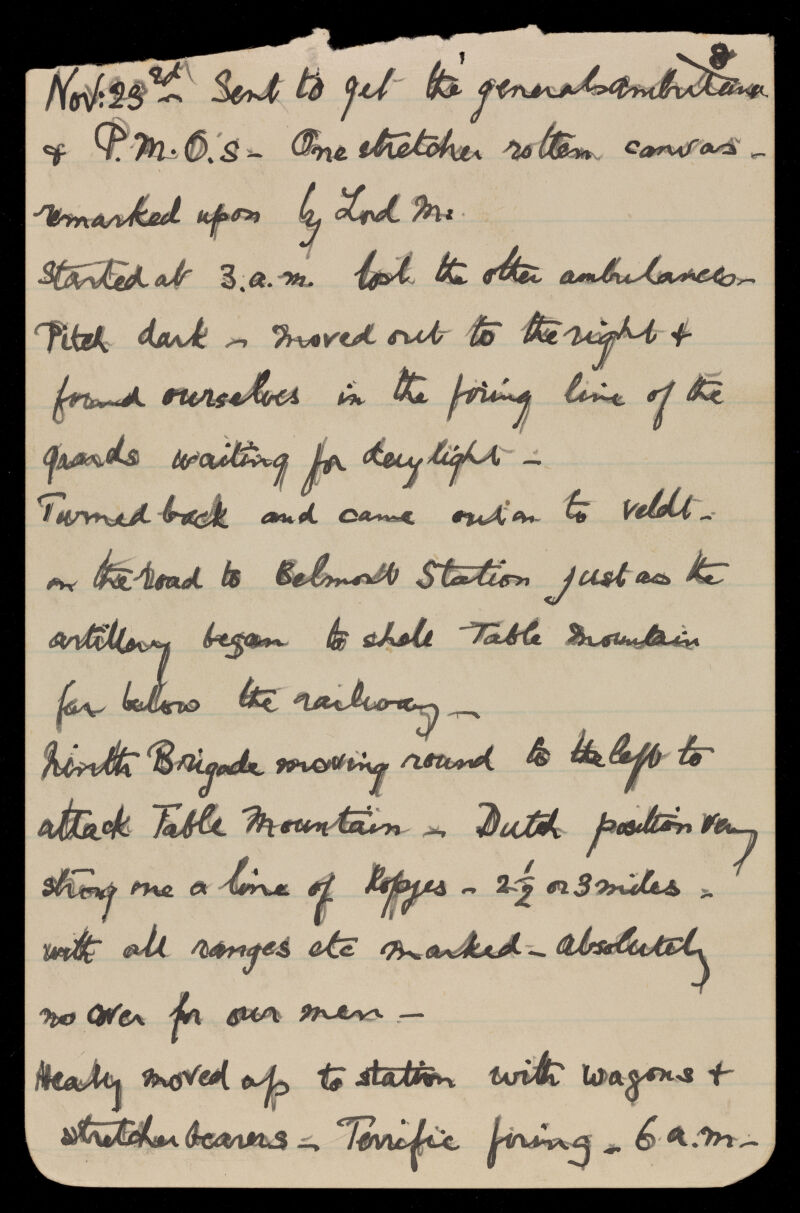 8
Nov: 23rd - Sent to get the generals ambulance
& P.M.O.s - One stretcher rotten canvas -
remarked upon by Lord M:
Started at 3.a.m. lost the other ambulances -
Pitch dark - moved out to the right &
found ourselves in the firing line of the
guards waiting for daylight -
Turned back and came out on to veldt -
on the road to Belmont Station just as the
artillery began to shell Table Mountain
far below the railway -
Ninth Brigade moving round to the left to
attack Table Mountain - Dutch position very
strong on a line of Kopjes - 2½ or 3 miles -
with all ranges etc marked - absolutely
no cover for our men -
Healey moved up to station with wagons &
stretcher bearers - Terrific firing - 6 a.m -